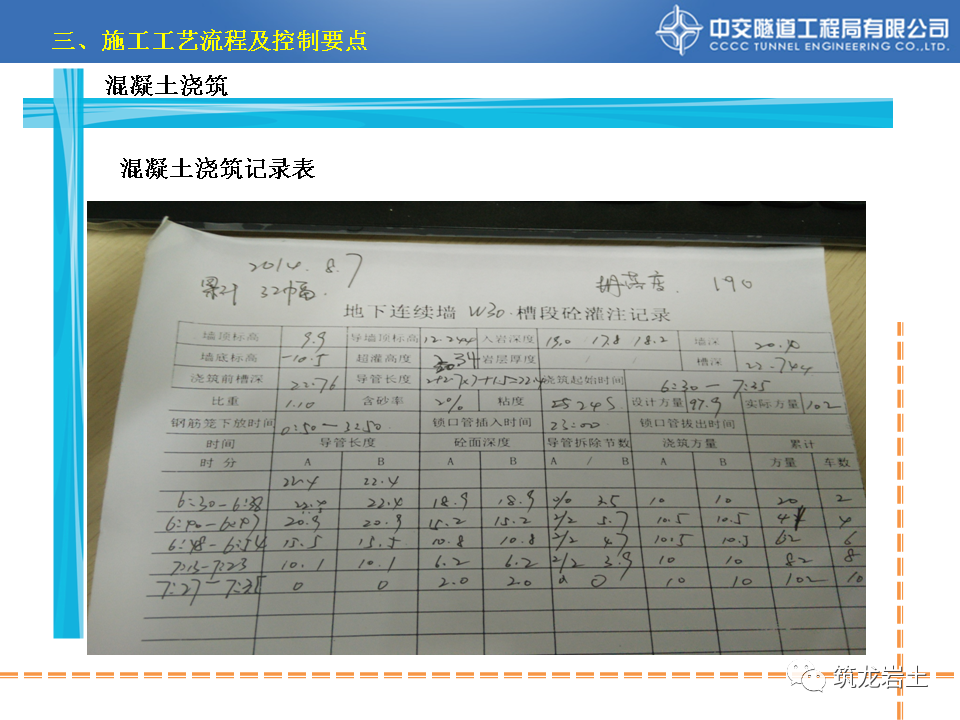 三、施工工艺流程及控制要点
中交隧道工程局有限公司
CCCC TUNNEL ENGINEERING CO.,LTD.
混凝土浇筑
混凝土浇筑记录表
2014.8.7
累计 32幅. 190
地下连续墙 W30 槽段砼灌注记录
墙顶标高 9.9 导墙顶标高 12.244 入岩深度 19.0 17.8 18.2 墙深 20.4
墙底标高 -10.5 超灌高度 岩层厚度 / / 槽深 22.744
浇筑前槽深 22.76 导管长度 浇筑起始时间 6:30 — 7:35
比重 1.10 含砂率 2% 粘度 设计方量 197.9 实际方量 102
钢筋笼下放时间 0:50 — 32:50 锁口管插入时间 23:00 锁口管拔出时间
时间 导管长度 砼面深度 导管拆除节数 浇筑方量 累计
时 分 A B A B A / B A B 方量 车数
22.4 22.4
6:30-6:38 22.4 22.4 18.9 18.9 3.5 10 10 20 2
20.9 20.9 15.2 15.2 2/2 5.7 10.5 10.5 41 4
6:48-6:54 15.5 15.5 10.8 10.8 2/2 4.7 10.5 10.5 62 6
7:13-7:23 10.1 10.1 6.2 6.2 2/2 3.9 10 10 82 8
7:27-7:35 0 0 2.0 2.0 0 10 10 102 10
筑龙岩土